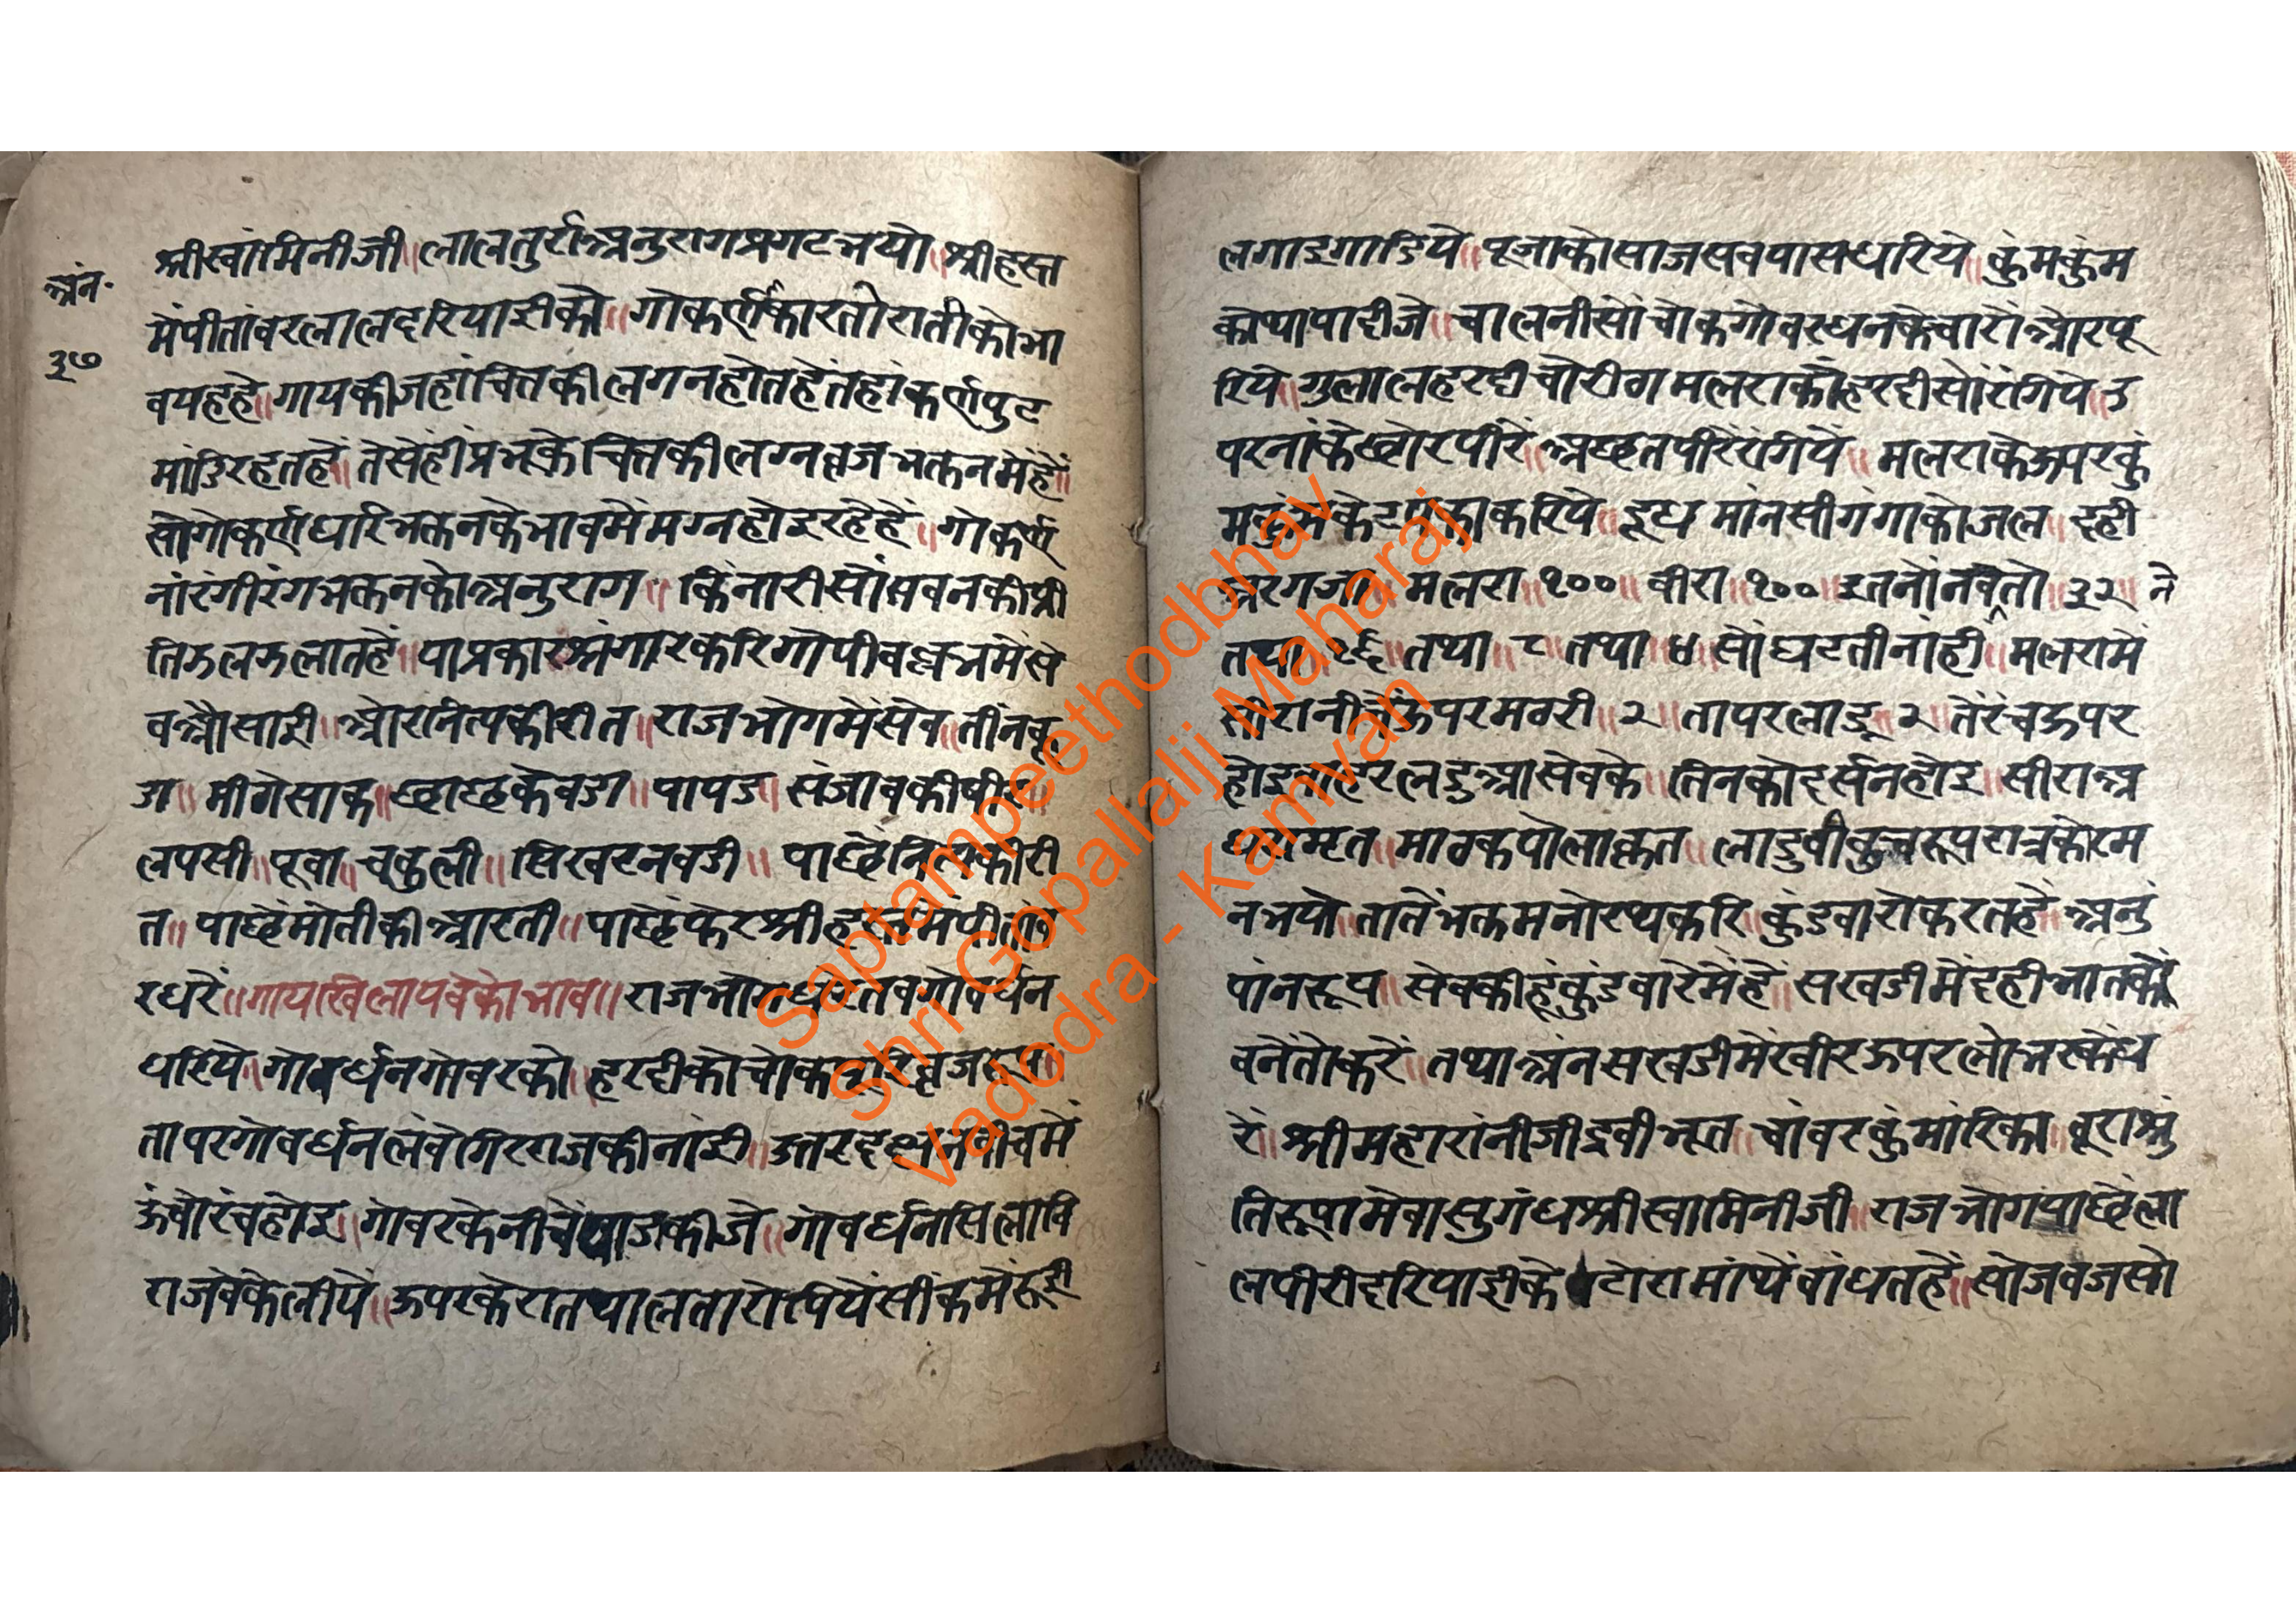 अंन॰
३७
श्रीस्वांमिनीजी॥ लालतुर्राअनुरागप्रगटभयो॥ श्रीहस्त
मेंपीतांबरलालदरियाईको॥ गोकर्णकारतोरातीकोभा
वयहहे॥ गायकीजहांचितकीलगनहोतहेंतहांकर्णपुट
मांडिरहतहें॥ तेसेंहीप्रभूकेचित्तकीलग्नव्रजभक्तनमेंहें॥
सोगोकर्णधारिभक्तनकेभावमेंमग्नहोइरहेहें॥ गोकर्ण
नांरंगीरंगभक्तनकोअनुराग॥ किंनारीसोंसबनकीप्री
तिझलझलातहें॥ याप्रकारश्रृंगारकरिगोपीवल्लभमेंसे
वओसाई॥ ओरनित्यकीरीत॥ राजभोगमेंसेव॥ तीनकू
डा॥ मीठोसाक॥ छाछकेवडा॥ पापड॥ संजावकीषीर॥
लपसी॥ पूवा॥ चकुली॥ सिखरनवडी॥ पाछेंनित्यकीरी
त॥ पाछेंमोतीकीआरती॥ पाछेंफेरश्रीहस्तमेंपीतांब
रधरें॥ गायखिलायवेकोभाव॥ राजभोगधरेंतबगोवर्धन
धरिये॥ गोवर्धनगोबरको॥ हरदीकोचोकपूरिव्रजरूप॥
तापरगोवर्धनलंबेगिरराजकीनांई॥ उत्तरदक्षनबीचमें
ऊंचोरंचहोइ॥ गोबरकेनीचेंप्याजकीजे॥ गोवर्धनसिलावि
राजवेकेलीयें॥ ऊपरकेरातथालतारोपियेसींकमेंरूई
लगाइगाडिये॥ पूजाकोसाजसबपासधरिये॥ कुंमकुंम
कोथापादीजे॥ चालनीसोंचोकगोवरधनकेचारोंओरपू
रिये॥ गुलालहरदीचोरीठामलराकोंहरदीसोंरंगिये॥ उ
परनांकेछोरपीरे॥ अछतपीरेंरंगियें॥ मलराकेऊपरकुं
मकुमकेटपकाकरिये॥ दूधमांनसीगंगाकोजल॥ दही
अरगजा॥ मलरा॥१००॥ बीरा॥१००॥ इतनोंनबनेतो॥३२॥
तथा॥१६॥ तथा॥८॥ तथा॥४॥ सोंघटतीनांही॥ मलरामें
सीरानीचेंऊपरमठरी॥२॥ तापरलाडू॥२॥ तेरंचऊपर
होइबाहरलडुआसेवके॥ तिनकोदर्सनहोइ॥ सीराअ
धरामृत॥ माठकपोलाकृत॥ लाडुवाकुचरूपरात्रकोरम
नभयो॥ तातेंभक्तमनोरथकरि॥ कुंडवारोकरतहें॥ अनु
पांनरूप॥ सेवकीहूंकुंडवारेमेंहें॥ सखडीमेंदहीभातको
बनेंतोकरें॥ तथाअंनसखडीमेंखीरऊपरलोभरकेध
रें॥ श्रीमहारांनीजीद्रवीभूत॥ चांवरकुंमांरिका॥ बूराश्रु
तिरूपामेवासुगंधश्रीस्वामिनीजी॥ राजभोगपाछेंला
लपीरीदरियाईकेपटोरामांथेंबांधतहें॥ सोजबजसो